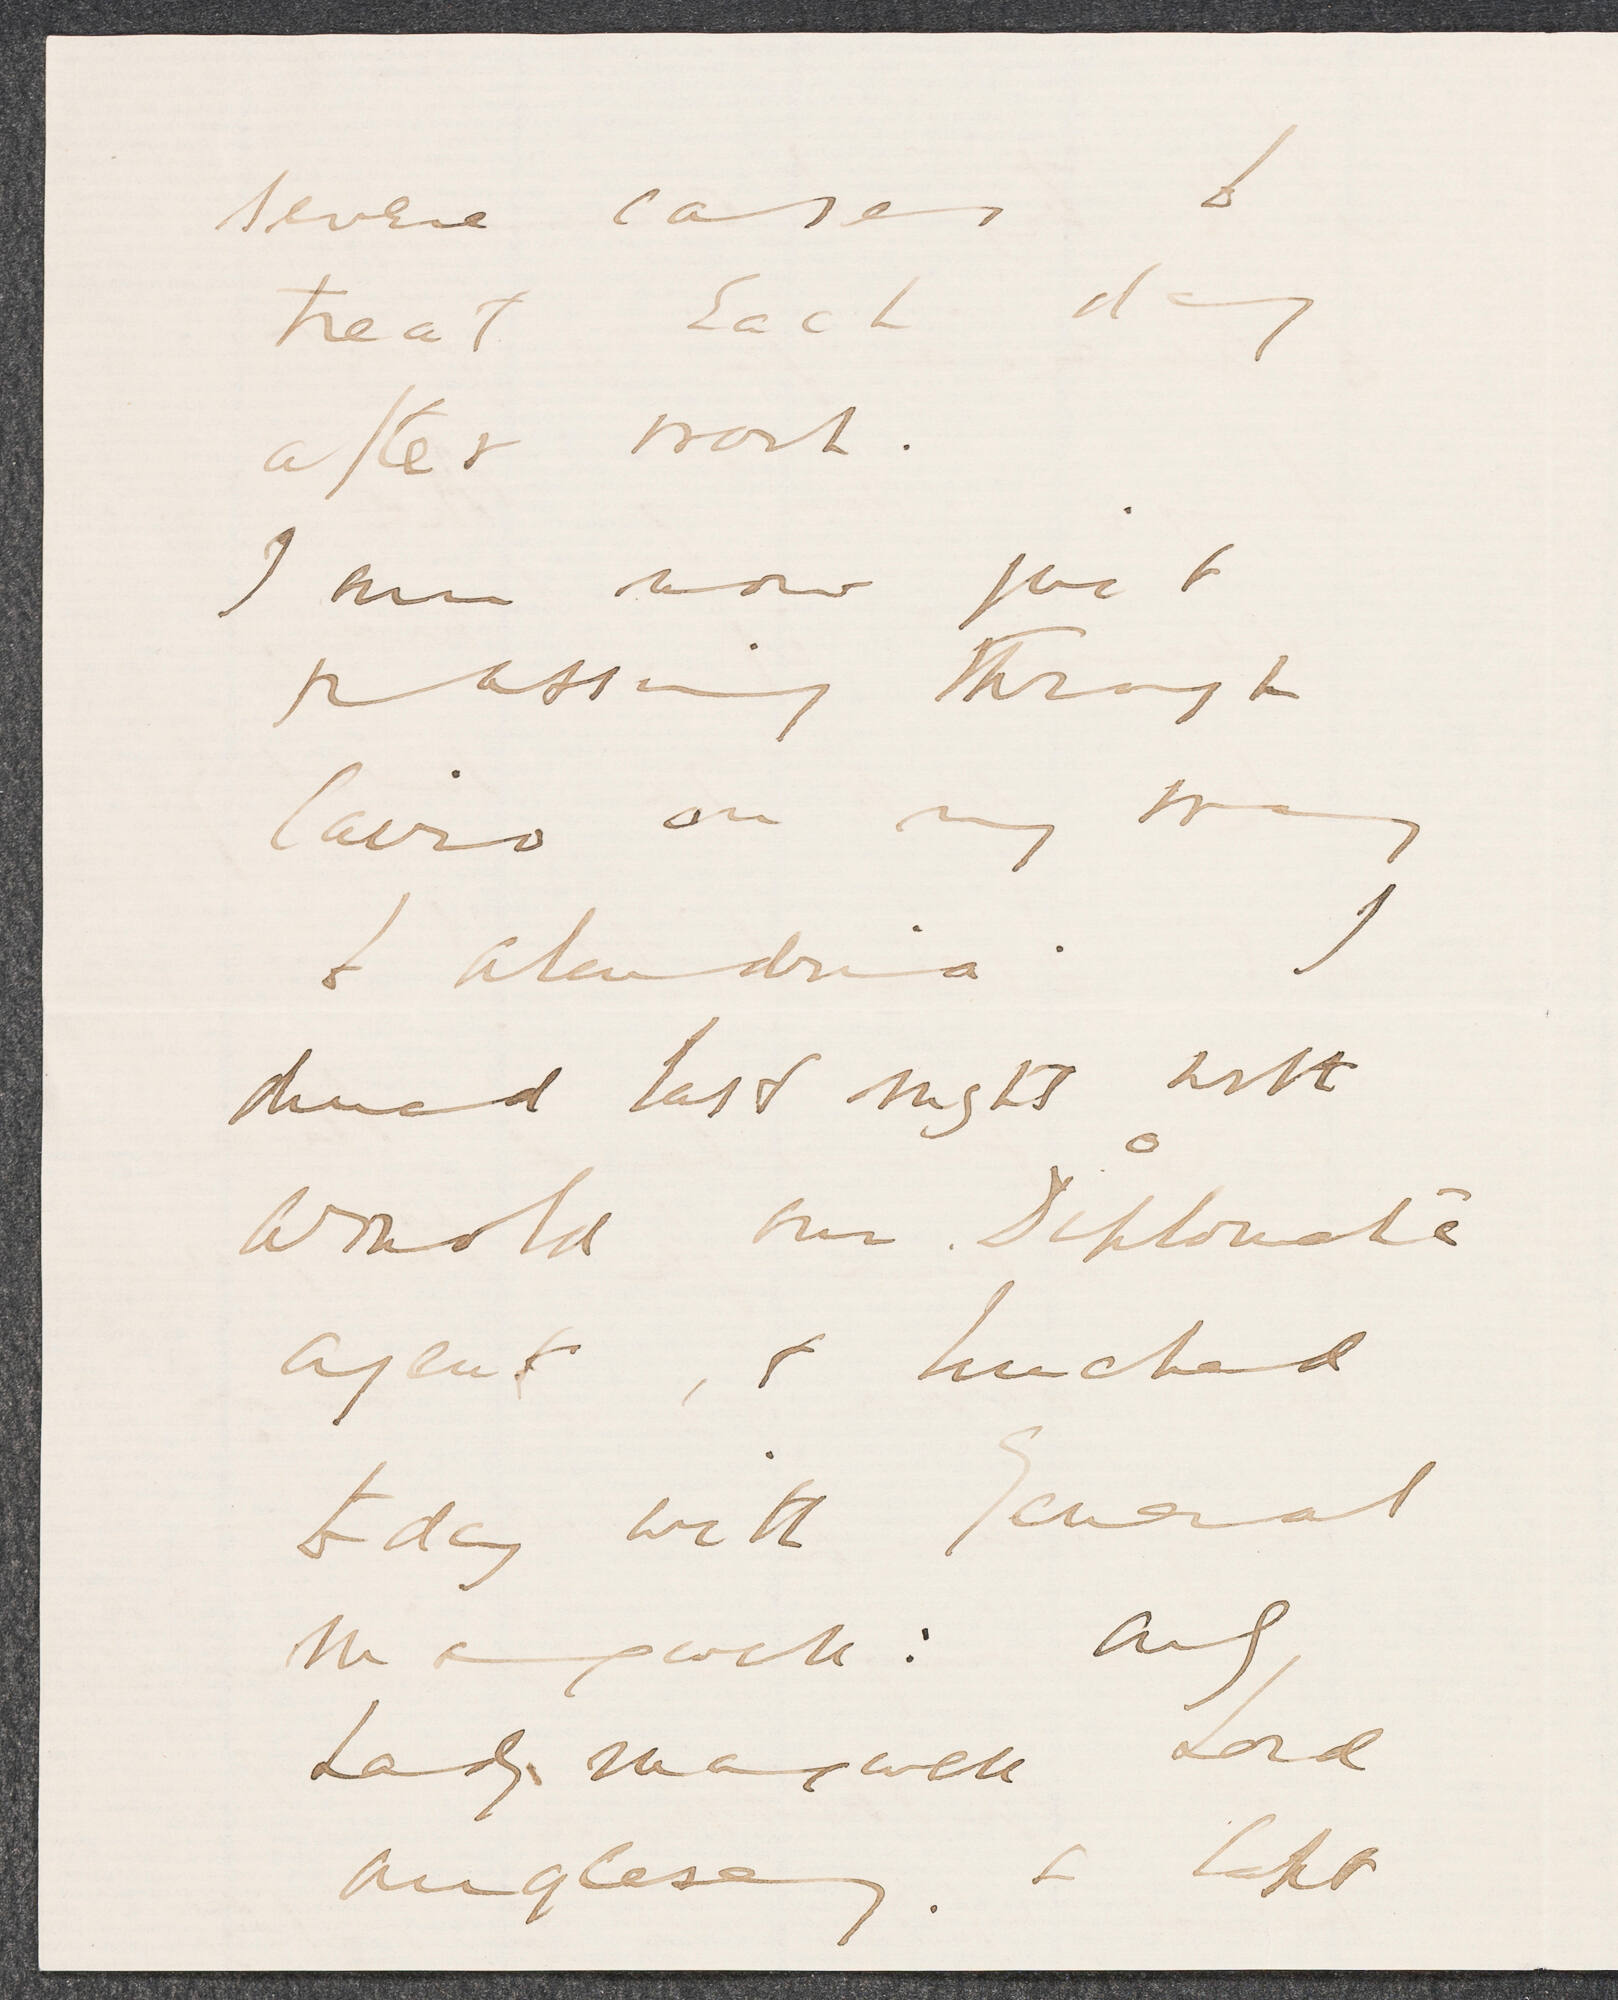 severe cases to
treat each day
after work.
I am now just
passing through
Cairo on my way
to Alexandria. I
dined last night with
Arnold our Diplomatic
agent, & lunched
today with General
Maxwell: and
Lady Maxwell Lord
Anglesey. & Capt